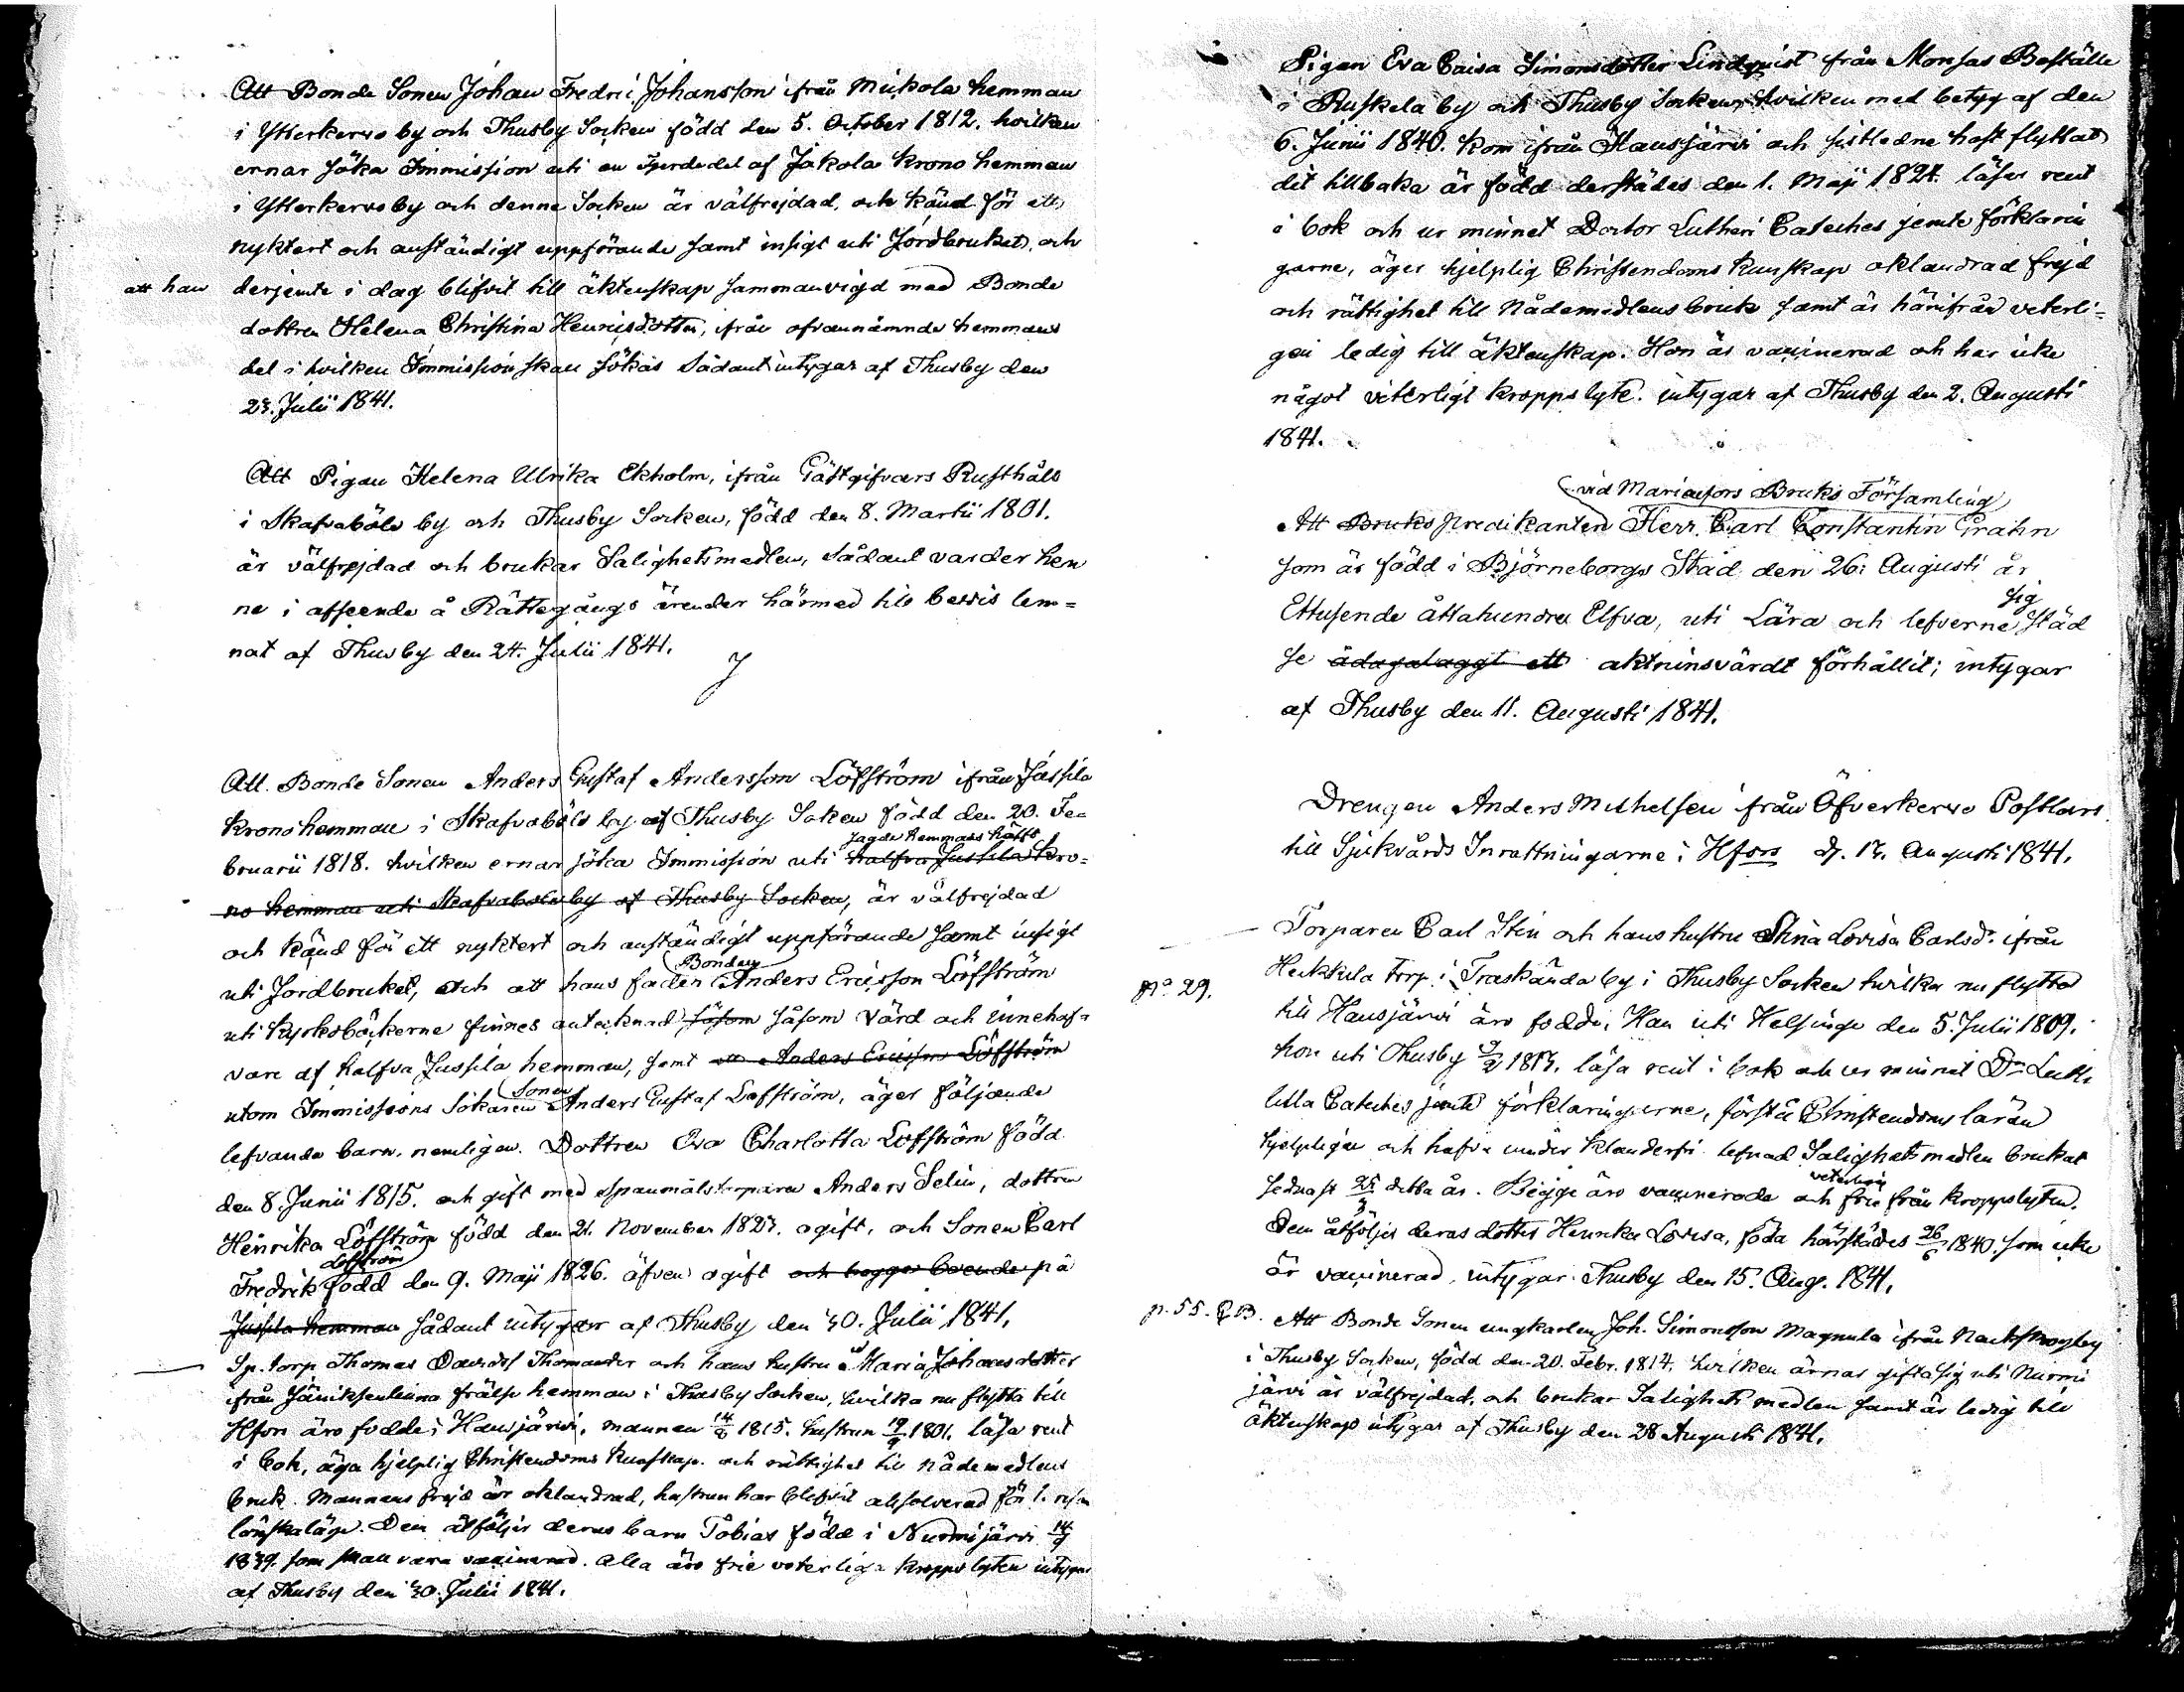 Att Bonde Sonen Johan Fredric Johansson ifrån Mickola hemman
i Ytterkervo by och Thusby Socken född den 5. October 1812. hvilken
ernar söka Immission uti en Fjerdedel af Jakola Krono hemman
i Ytterkervo by och denna Socken är välfrejdad, och känd för ett
nyktert och anständigt uppförande samt insigt uti Jordbruket, och
att han derjemte i dag blifvit till äktenskap sammanvigd med Bonde
dottren Helena Christina Henricsdotter, ifrån ofvannämnde hemmans
del i hvilken Immission skall sökas Sådant intygar af Thusby den
23. Julii 1841.
Att Pigan Helena Ulrika Ekholm, ifrån Gästgifvars Rusthåls
i Skafvaböle by och Thusby Socken, född den 8. Martii 1801.
är välfrejdad och brukar Salighetsmedlen, Sådant varder hen
ne i afseende å Rättegångs ärender härmed till bevis lem=
nat af Thusby den 24. Julii 1841.
Att Bonde Sonen Anders Gustaf Andersson Löfström ifrån Jussila
Krono hemman i Skafvaböle by af Thusby Soken född den 20. Fe=
sagde hemmans hälft
bruarii 1818. hvilken ernar söka Immission uti halfva Jussila Kro=
no hemman uti Skafvaböle by af Thusby Socken, är välfrejdad
och känd för ett nyktert och anständigt uppförande samt insigt
Bonden
uti Jordbruket, och att hans fader Anders Ericsson Löfström
uti Kyrkoböckerne finnes antecknad såsom såsom Värd och innehaf=
vare af halfva Jussila hemman, samt Anders Ericsson Löfström
Sonen
utom Immissions Sökaren Anders Gustaf Löfström, äger följande
lefvande barn, nemligen. Dottren Eva Charlotta Löfström född
den 8. Junii 1815. och gift med Spanmåls torparen Anders Selin, dottren
Henrika Löfström född den 21. November 1823. ogift, och Sonen Carl
Löfström
Fredrik född den 9. Maji 1826. äfven ogift och begge boende på
Jussila hemman sådant intygar af Thusby den 30. Julii 1841.
Sp. torp. Thomas Davidss. Thomander och hans hustru Maria Johansdotter
ifrån frälse hemman i Thusby Socken, hvilka nu flytta till
Hfors äro födde i Hausjärvi, mannen 1815. hustrun 1801. läsa rent
i bok, äga hjelplig Christendoms Kunskap och rättighet till nådemedlens
bruk. Mannens frejd är oklandrad, hustrun har blifvit absolverad för 1. resan
lönskaläge. Dem åtföljer deras barn Tobias född i Nurmijärvi 14/9
1839. som skall vara vaccinerad. Alla äro frie veterliga kroppslyten intygar
af Thusby den 30. Julii 1841.
Pigan Eva Caisa Simonsdotter Lindqvist från Monsas Boställe
i Ruskela by och Thusby Socken, hvilken med betyg af den
6. Junii 1840. kom ifrån Hausjärvi och sistledne höst flyttat
dit tillbaka är född derstädes den 1. Maji 1824. läser rent
i bok och ur minnet Doctor Lutheri Cateches jemte förklarin
garne, äger hjelplig Christendoms Kunskap oklandrad frejd
och rättighet till Nådemedlens bruk samt är härifrån veterli=
gen ledig till äktenskap. Hon är vaccinerad och har icke
något veterligt kroppslyte. intygar af Thusby den 2. Augusti
1841.
vid Mariæfors Bruks Församling
Att Bruks predikanten Herr Carl Constantin Grahn
som är född i Björneborgs Stad den 26. Augusti år
Ettusende åttahundra Elfva, uti Lära och lefverne städ
sig
se ådagalaggt ett aktninsvärdt förhållit; intygar
af Thusby den 11. Augusti 1841.
Drengen Anders Michelsen från Öfverkervo
till Sjukvårds Inrättningarne i Hfors d. 13. Augusti 1841.
Torparen Carl Stén och hans hustru Stina Lovisa Carlsdr. ifrån
No 29. torp i Träskända by i Thusby Socken hvilka nu flytta
till Hausjärvi äro födde, Han uti Helsinge den 5. Julii 1809.
hon uti Thusby 1813. läsa rent i bok och ur minnet Dr. Luth.
lilla Cateches jemte förklaringarne, förstå Christendoms läran
hjelpligen och hafva under klanderfri lefnad Salighetsmedlen brukat
veterligen
sednast 25/3 detta år. Begge äro vaccinerade och frie från kroppslyten.
Dem åtföljer deras dotter Henrika Lovisa, föda härstädes 26/6 1840. som icke
är vaccinerad, intygar Thusby den 15. Aug. 1841.
p. 55. Att Bonde Sonen ungkarlen Joh. Simonsson Magnula ifrån Nackskogby
i Thusby Socken, född den 20. Febr. 1814. hvilken ärnar gifta sig uti Nurmi
järvi är välfrejdad, och brukar Salighets medlen samt är ledig till
äktenskap intygar af Thusby den 28 Augusti 1841.